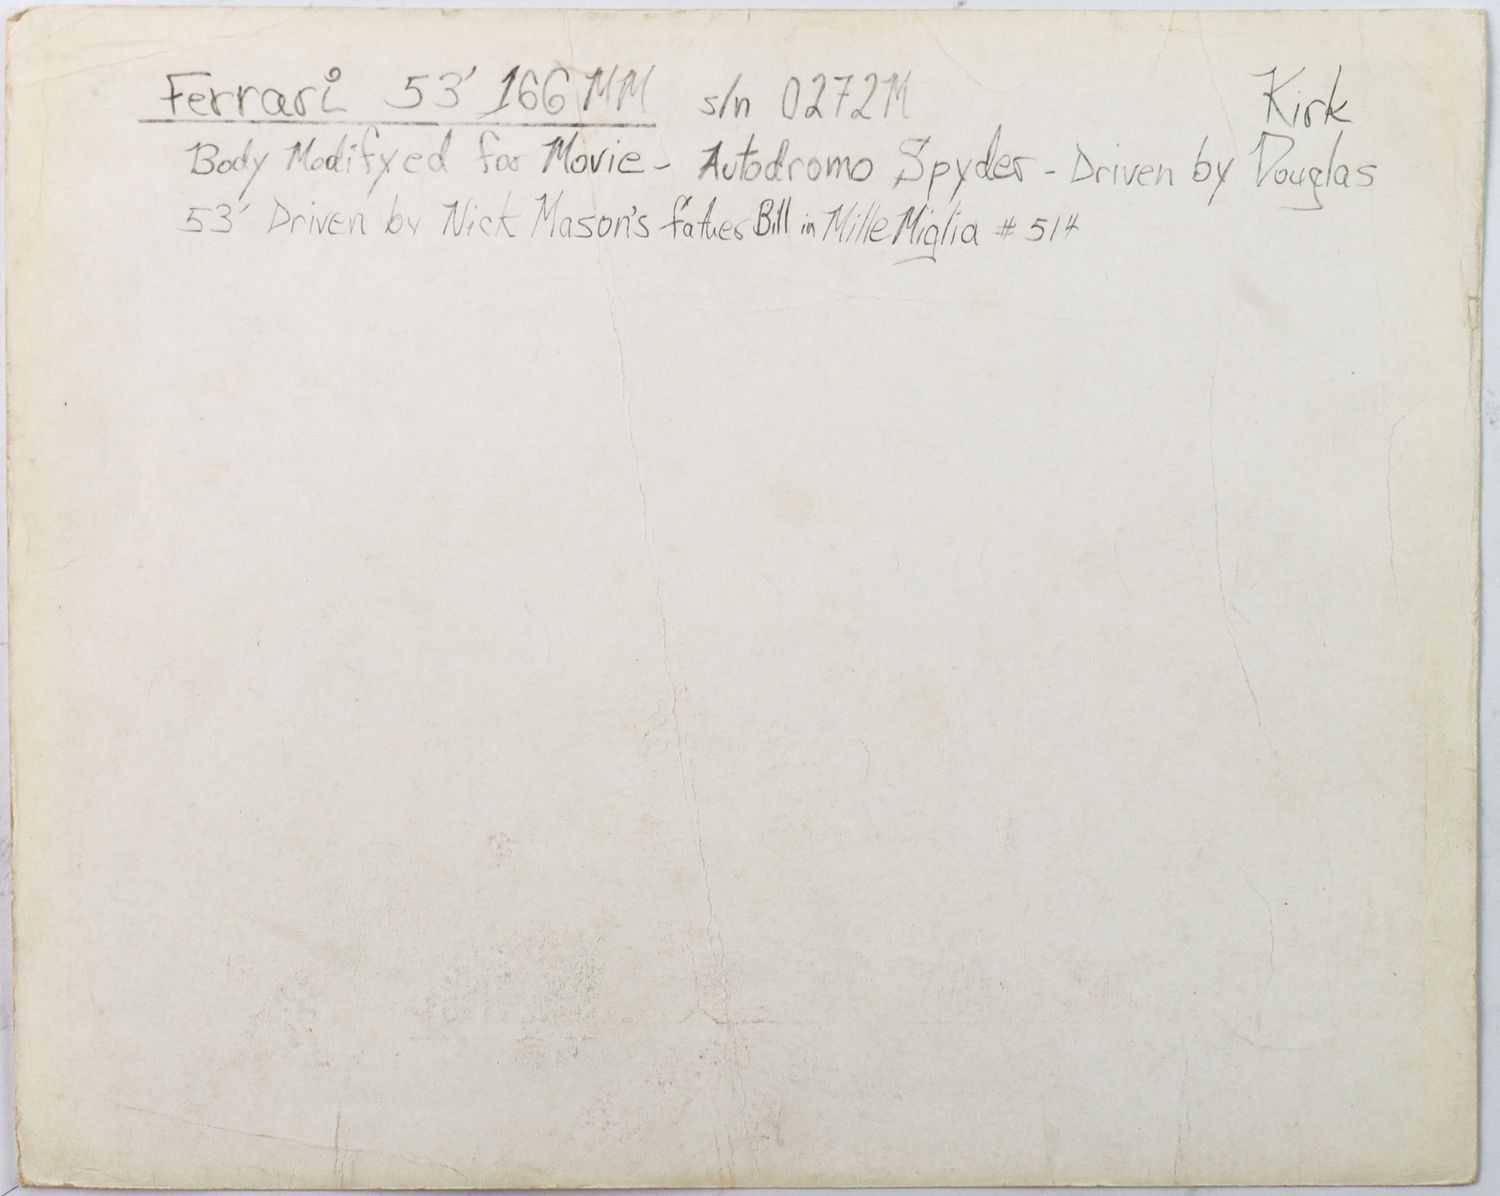 Ferrari 53' 166 MM s/n 0272M Kirk
Body Modifyed for Movie - Autodromo Spyder - Driven by Douglas
53' Driven by Nick Mason's father Bill in Mille Miglia # 514